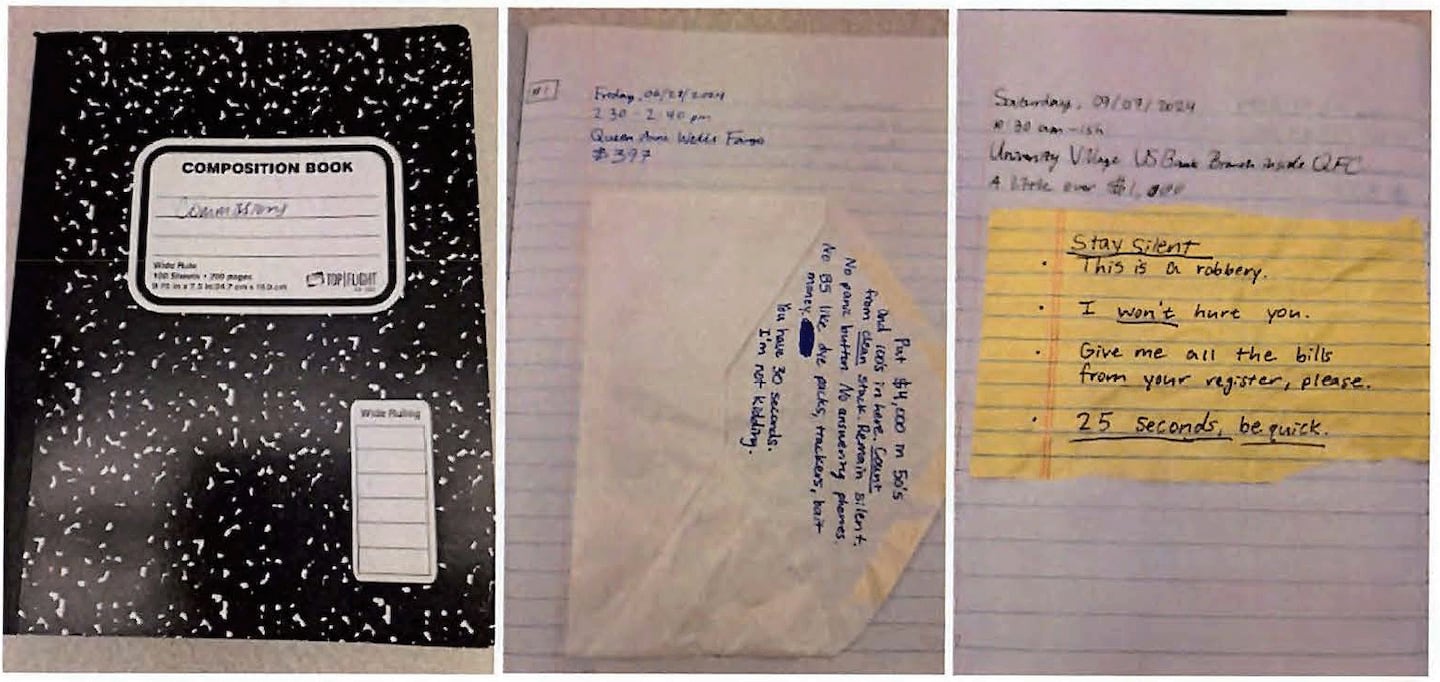 COMPOSITION BOOK
Commissions
Wide Rule
100 Sheets • 200 pages
9.75 in x 7.5 in/24.7 cm x 19.0 cm
TOP FLIGHT
Wide Ruling
#1
Friday, 06/28/2024
2:30 - 2:40 pm
Queen Anne Wells Fargo
$397
Put $4,000 in 50's
and 100's in here. Count
from clean stack. Remain silent.
No panic button. No answering phones.
No BS like dye packs, trackers, bait
money.
You have 30 seconds.
I'm not kidding.
Saturday, 09/07/2024
30 am-ish
University Village US Bank Branch inside QFC
A little over $1,000
Stay Silent
• This is a robbery.
• I won't hurt you.
• Give me all the bills
from your register, please.
• 25 seconds, be quick.